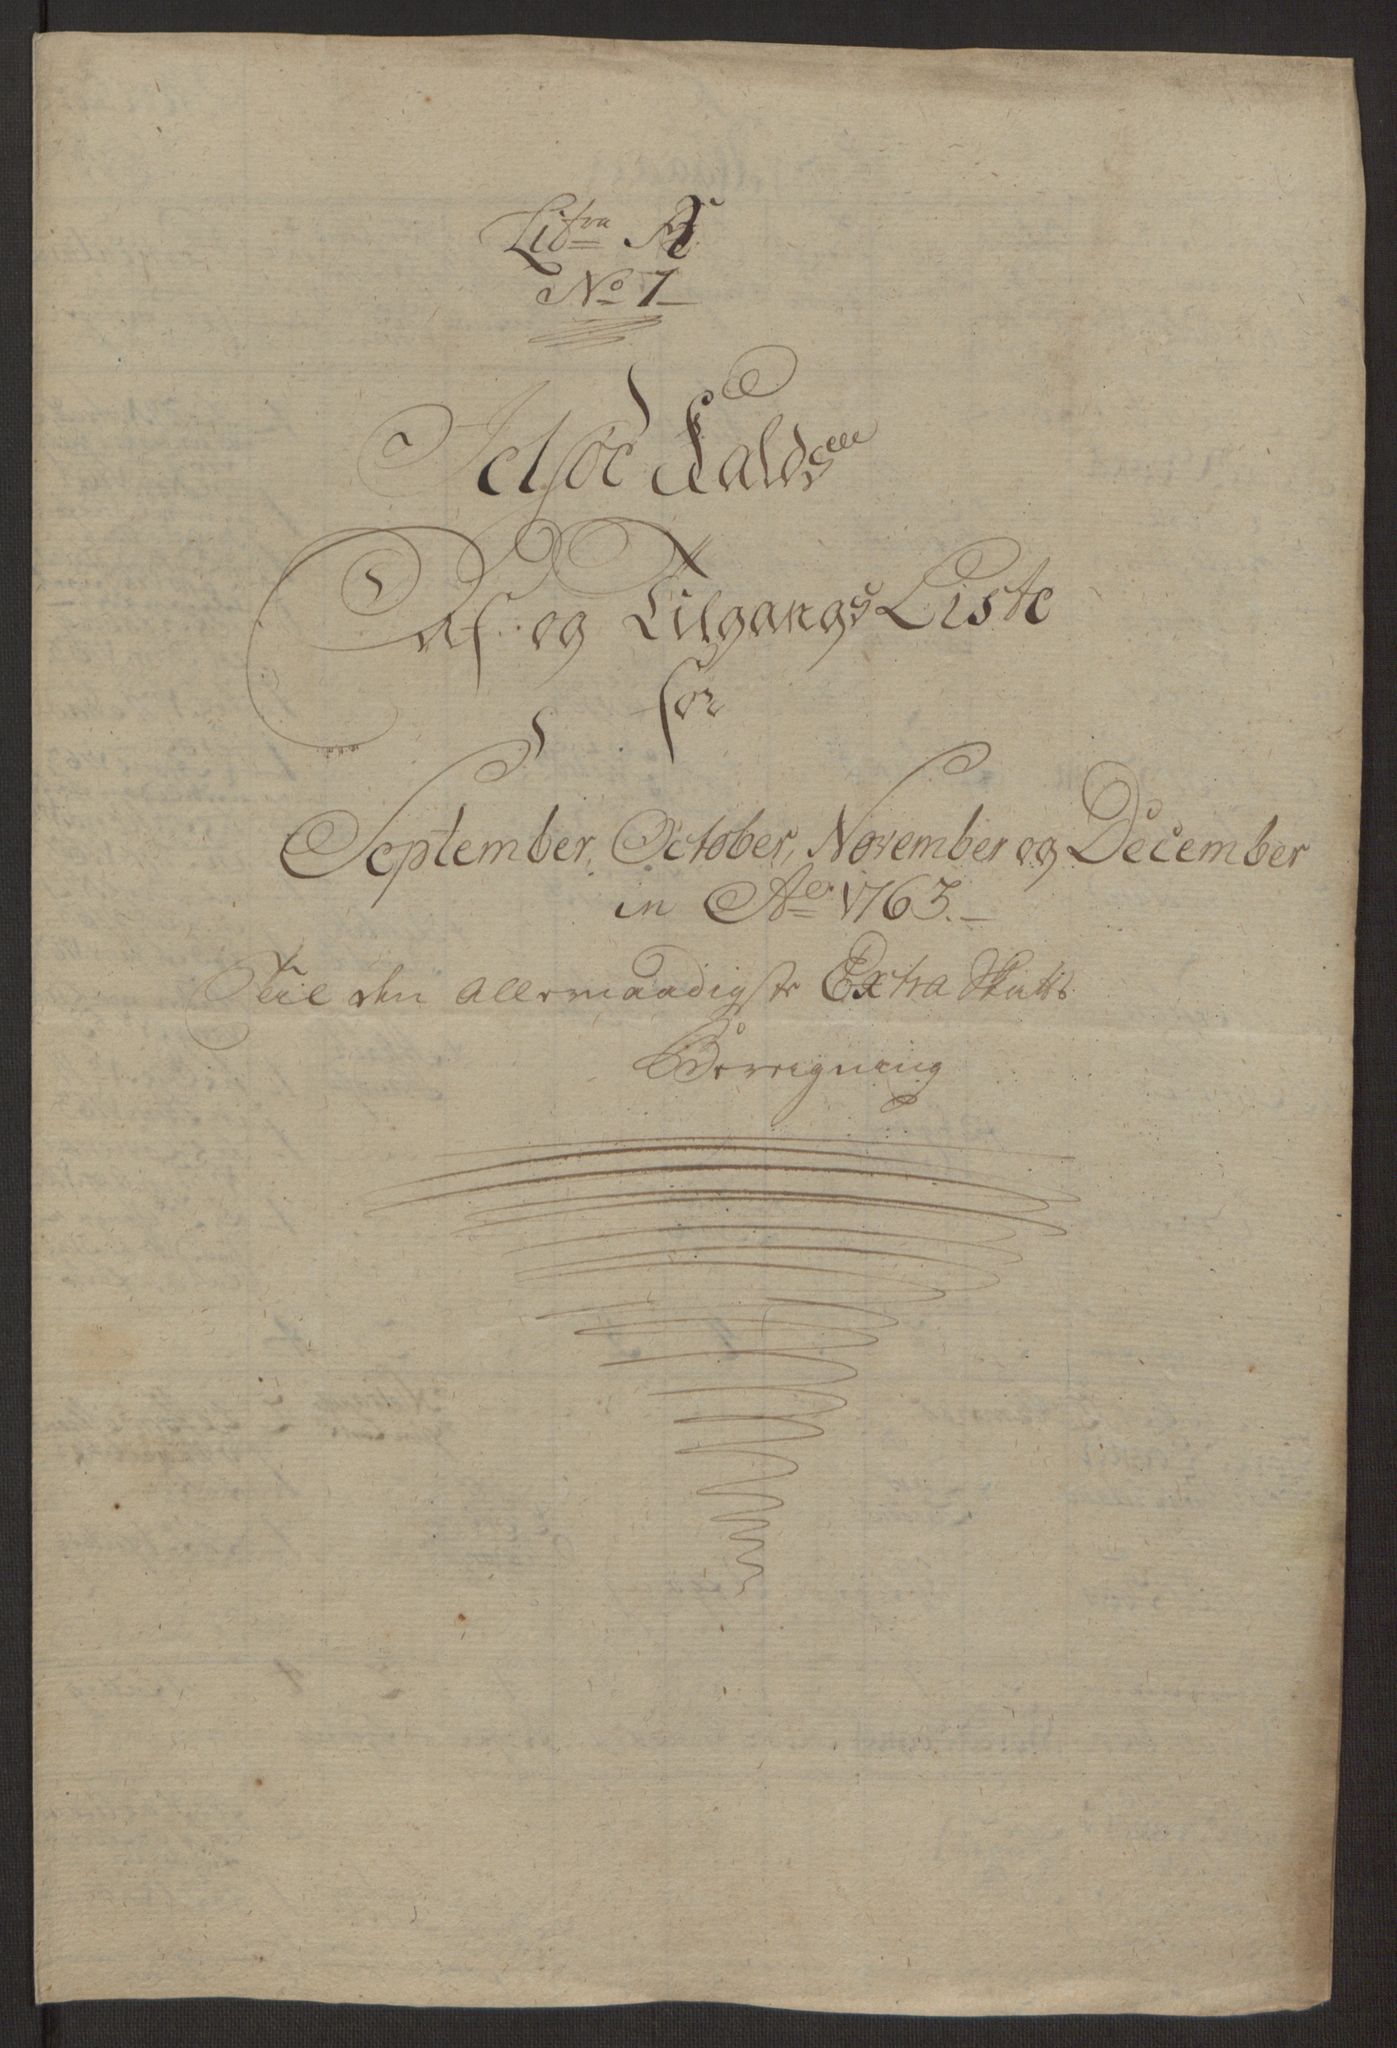 Litra A
No 1
Jelsöe Kalds
Af og Tilgangs Liste
for
September, October, November og December
in Ao 1763.
Til den allernaadigste Extra Skatts
Beregning